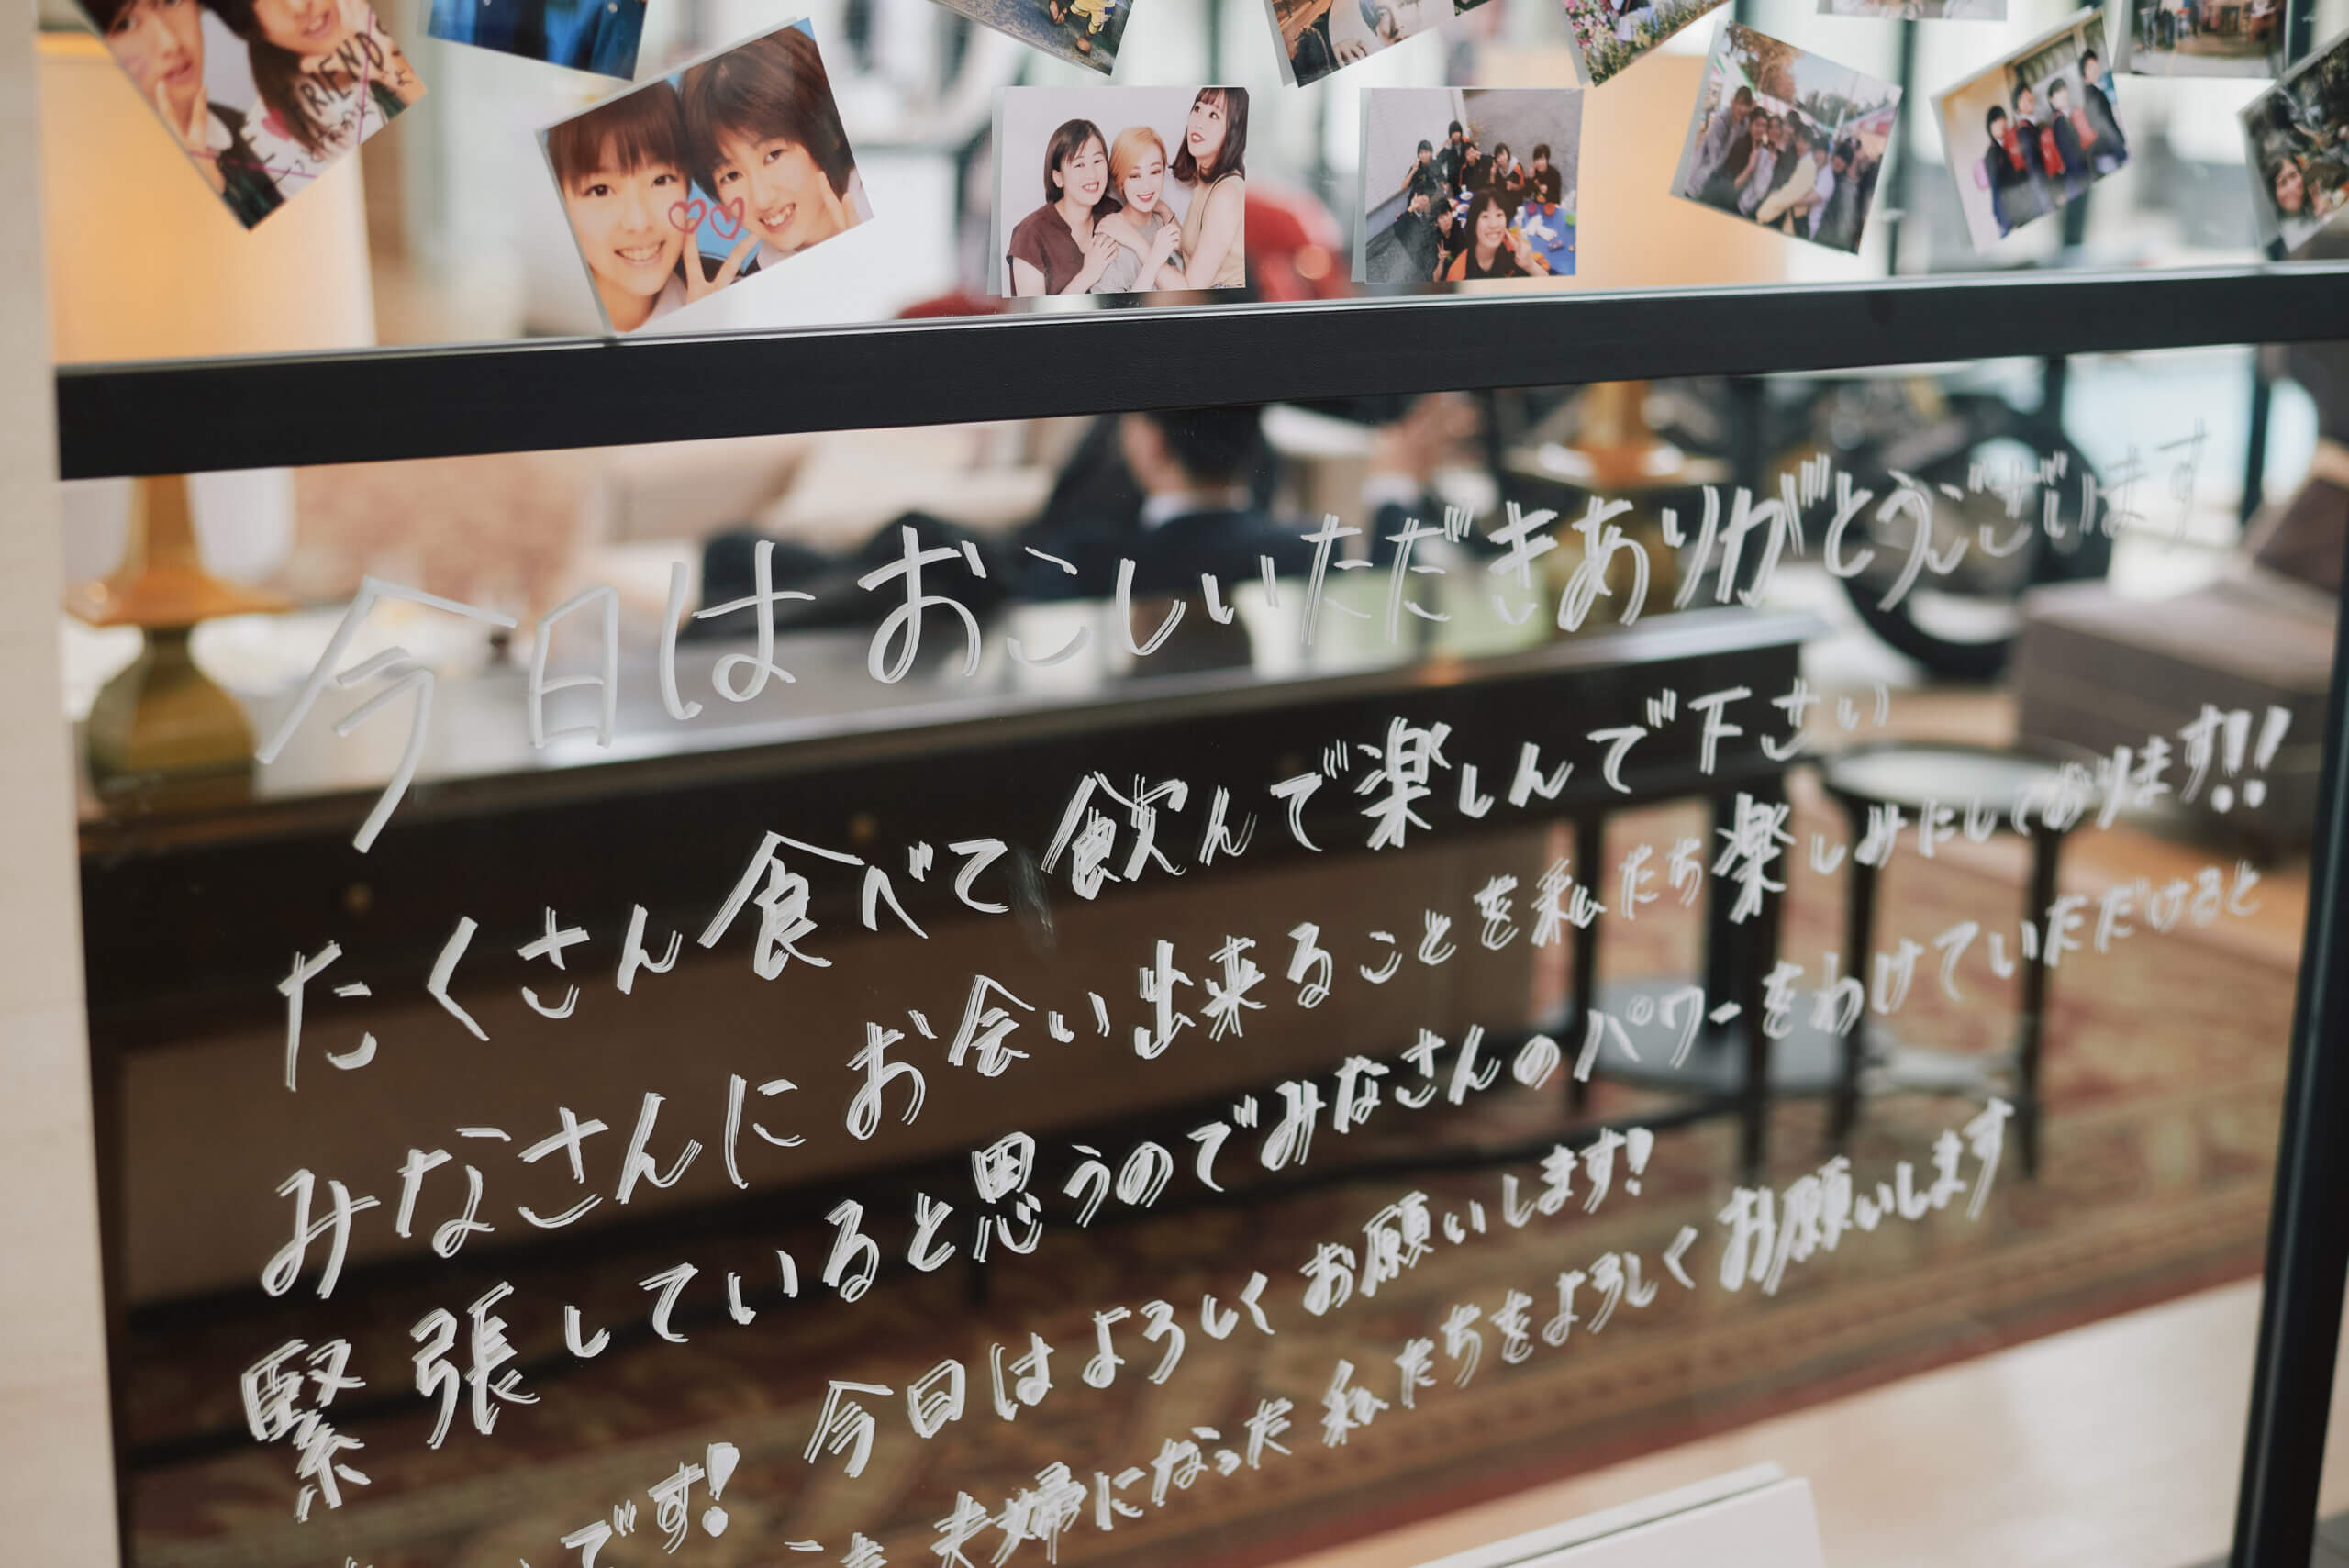 FRIENDS
今日はおこしいただきありがとうございます
たくさん食べて飲んで楽しんで下さい
みなさんにお会い出来ることを私たち楽しみにしております!!
緊張していると思うのでみなさんのパワーをわけていただけると
です! 今日はよろしくお願いします!
夫婦になった私たちをよろしくお願いします